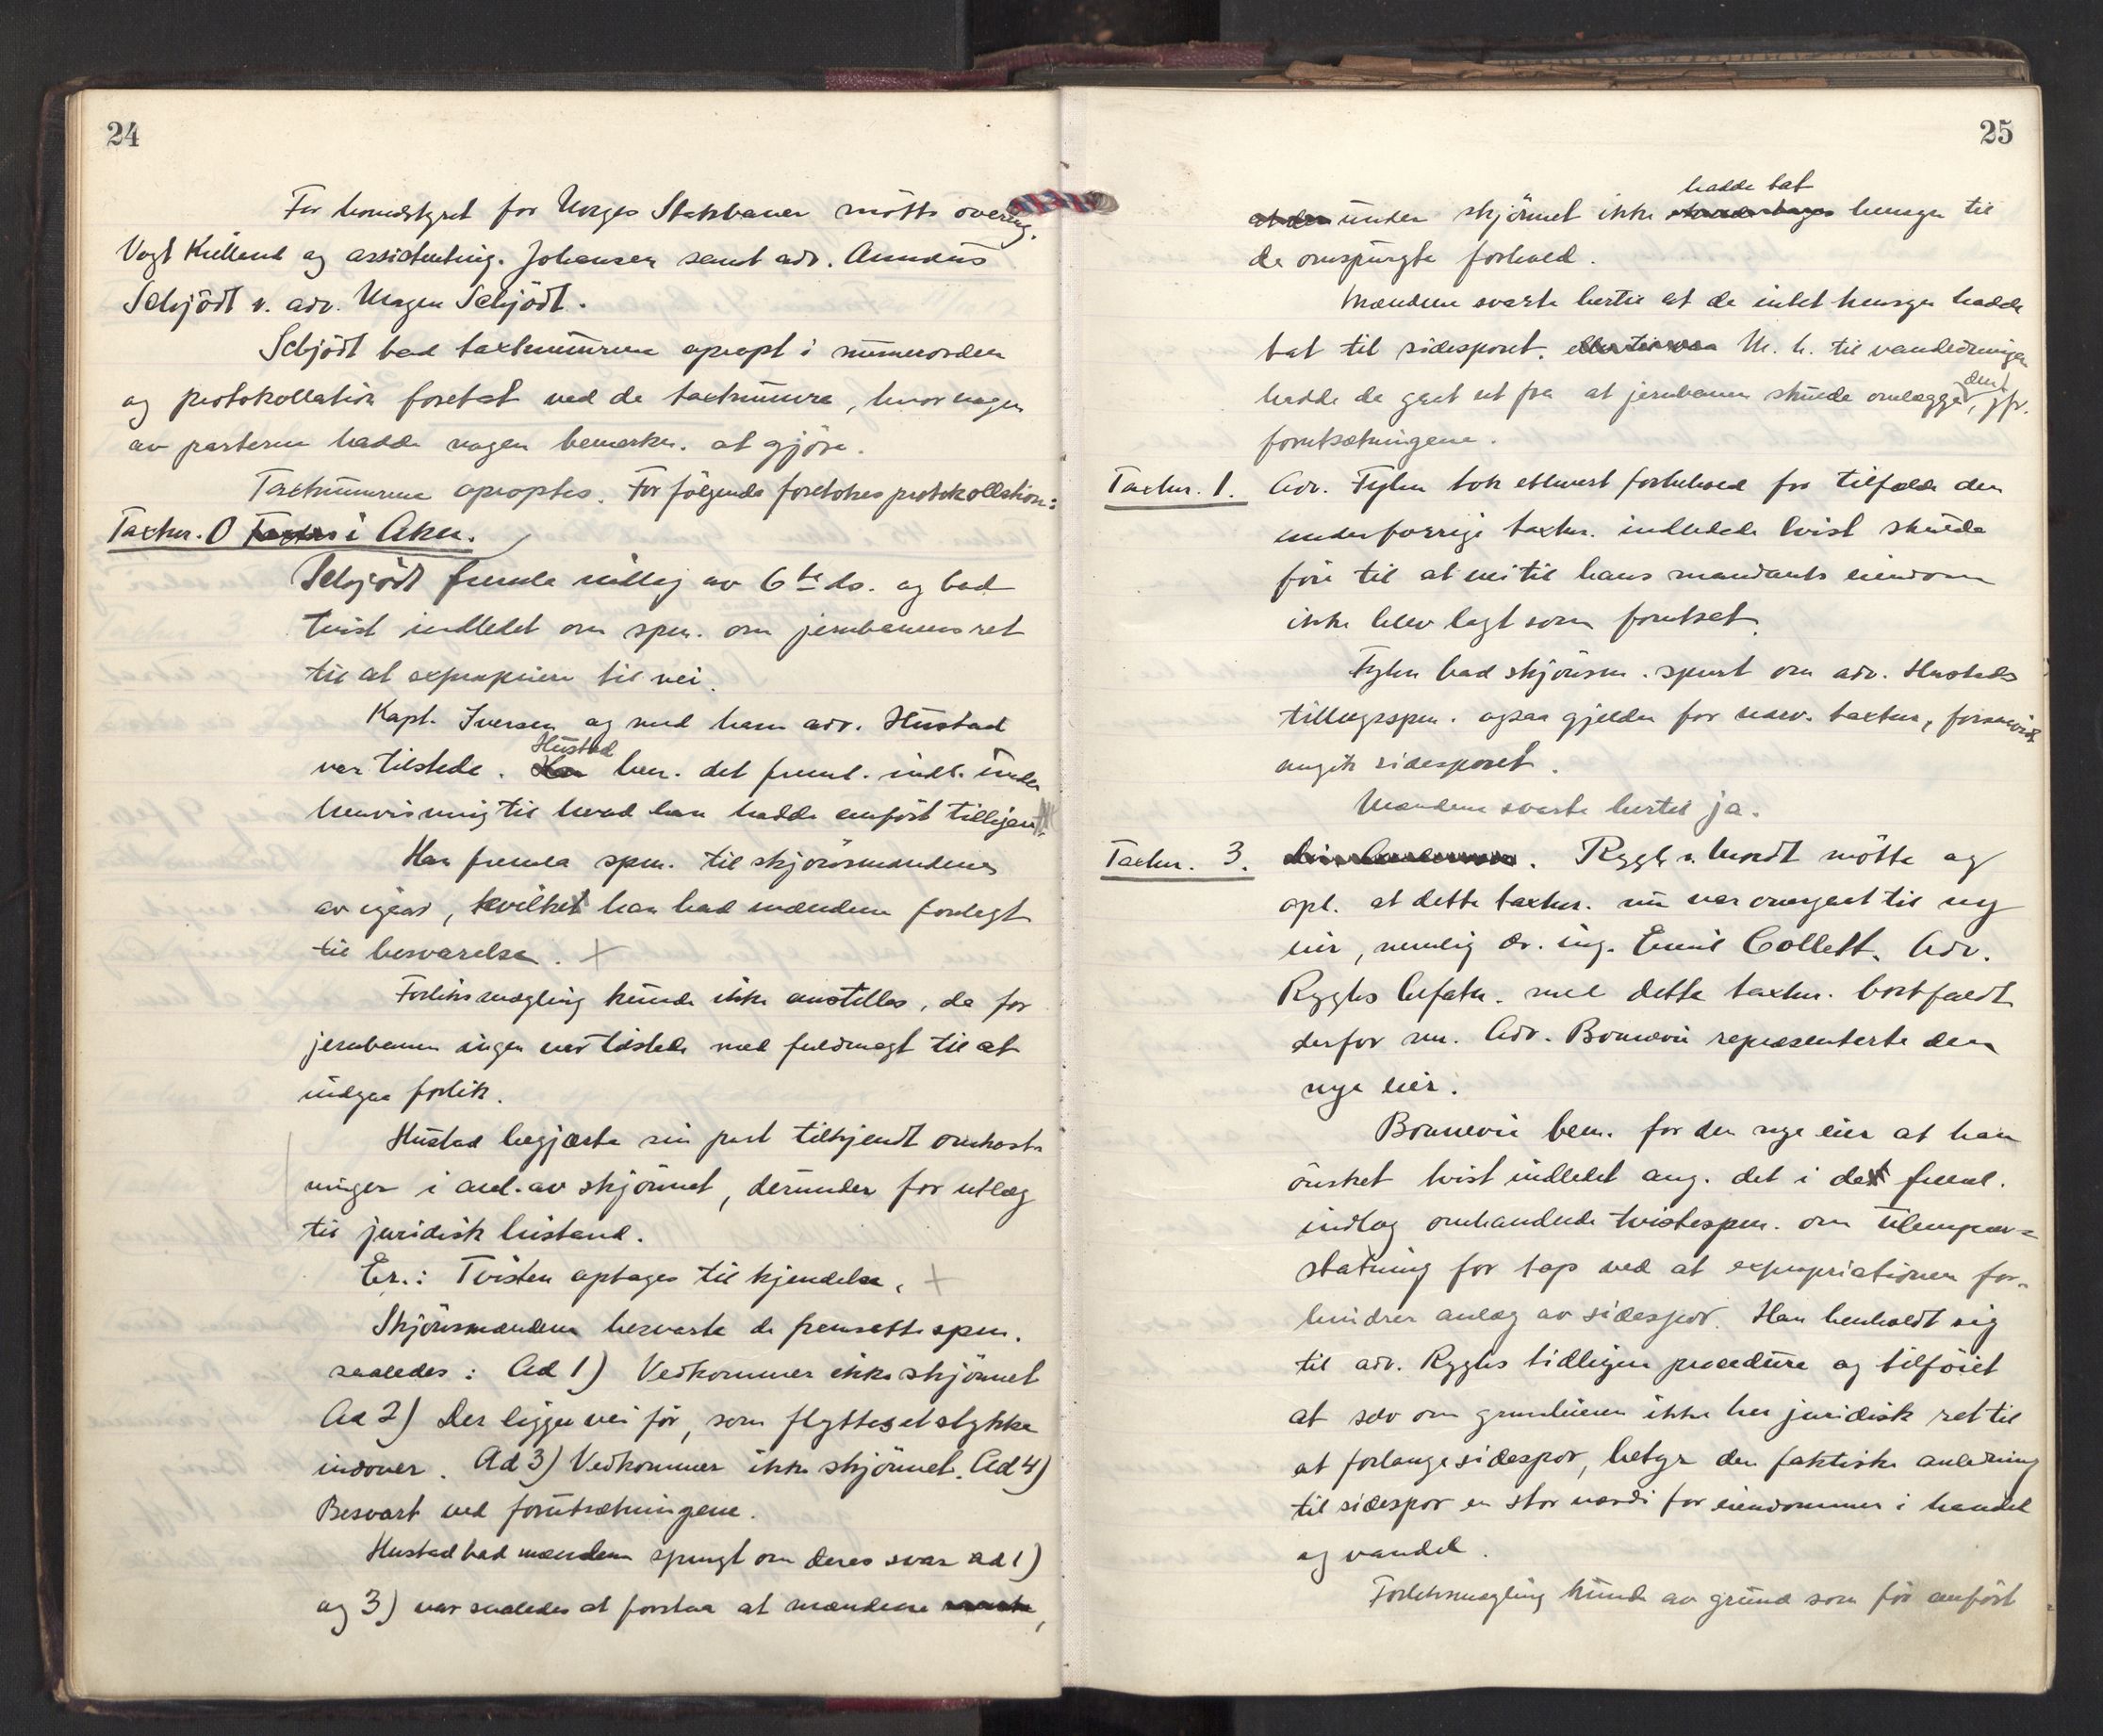 24
For hovedstyret for Norges Statsbaner mötte overing.
Vogt Kielland og assistenting. Johansen samt adv. Annæus
Schjödt v. adv. Mogen Schjödt.
Schjödt bad taxtnumrene opropt i nummerorden
og protokollation foretat ved de taxtnumre, hvor nogen
av parterne hadde nogen bemerkn. at gjöre.
Taxtnumrene oproptes. For fölgende foretokes protokollation:
Taxtnr. 0 i Aker.
Schjödt fremla indlæg av 6te ds. og bad
tvist indledet om spm. om jernbanens ret
til at expropriere til vei.
Kapt. Iversen og med ham adv. Hustad
var tilstede. Hustad bem. det freml. indl. under
henvisning til hvad han hadde anfört tidligere.
Han fremla spm. til skjönsmændene
av igaar, hvilket han bad mændene forelagt
til besvarelse. +
Forliksmægling kunde ikke anstilles, da for
jernbanen ingen var tilstede med fuldmagt til at
indgaa forlik.
Hustad begjærte sin part tilkjendt omkost-
ninger i anl. av skjönnet, derunder for utlæg
til juridisk bistand.
Er.: Tvisten optages til kjendelse. +
Skjönsmændene besvarte de fremsatte spm.
saaledes: Ad 1) Vedkommer ikke skjönnet
Ad 2) Der ligger vei för, som flyttes et stykke
indover. Ad 3) Vedkommer ikke skjönnet. Ad 4)
Besvart ved forutsætningene.
Hustad bad mændene spurgt om deres svar ad 1)
og 3) var saaledes at forstaa at mændene
25
hadde tat
under skjönnet ikke hensyn til
de omspurgte forhold.
Mændene svarte hertil at de intet hensyn hadde
tat til sidesporet. M. h. til vandledningen
hadde de gaat ut fra at jernbanen skulde omlægge den, jfr.
forutsætningene.
Taxtnr. 1. Adv. Fylen tok ethvert forbehold for tilfælde den
under forrige taxtnr. indledede tvist skulde
före til at vei til hans mandants eiendom
ikke blev lagt som forutsat.
Fylen bad skjönsm. spurt om adv. Hustads
tillægsspm. ogsaa gjelder for nærv. taxtnr., forsaavidt
angik sidesporet.
Mændene svarte hertil ja.
Taxtnr. 3. Rygh v. Mordt mötte og
opl. at dette taxtnr. nu var overgaat til ny
eier, nemlig dr. ing. Emil Collett. Adv.
Ryghs befatn. med dette taxtnr. bortfaldt
derfor nu. Adv. Bonnevie representerte den
nye eier.
Bonnevie bem. for den nye eier at han
önsket tvist indledet ang. det i det freml.
indlæg omhandlede tvistespm. om ulempeer-
statning for tap ved at expropriationen for-
hindrer anlæg av sidespor. Han henholdt sig
til adv. Ryghs tidligere procedure og tilföiet
at selv om grundeieren ikke har juridisk ret til
at forlange sidespor, betyr den faktiske anledning
til sidespor en stor værdi for eiendommen i handel
og vandel.
Forliksmægling kunde av grund som för anfört